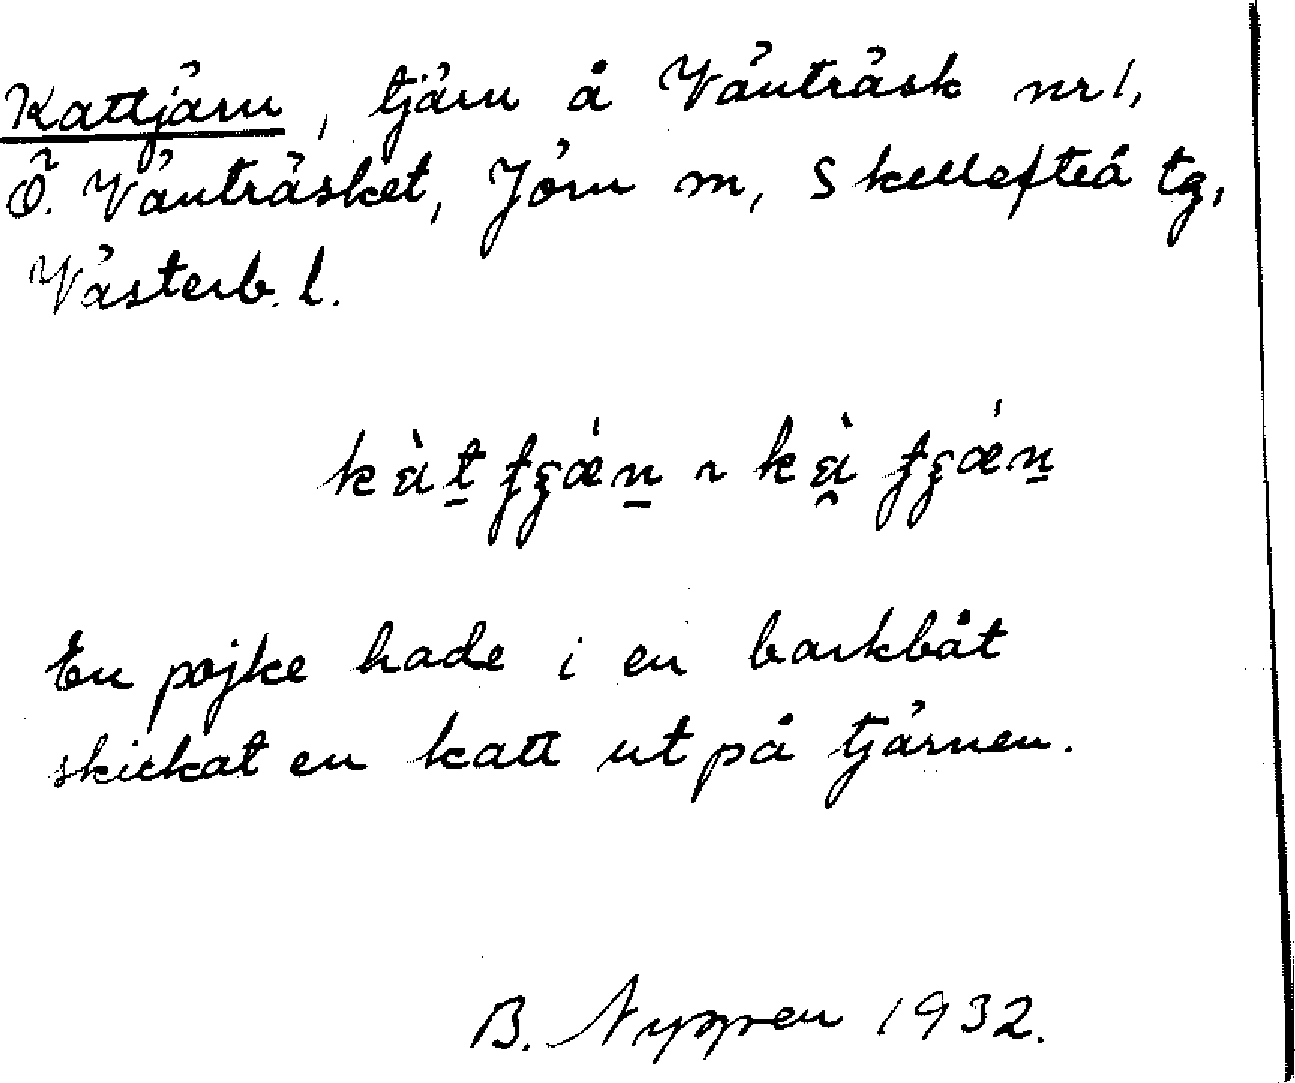 Kattjärn, tjärn å Vänträsk nr 1,
Ö. Vänträsket, Jörn m, Skellefteå tg,
Västerb. l.
En pojke hade i en barkbåt
skickat en katt ut på tjärnen.
B. Nygren 1932.